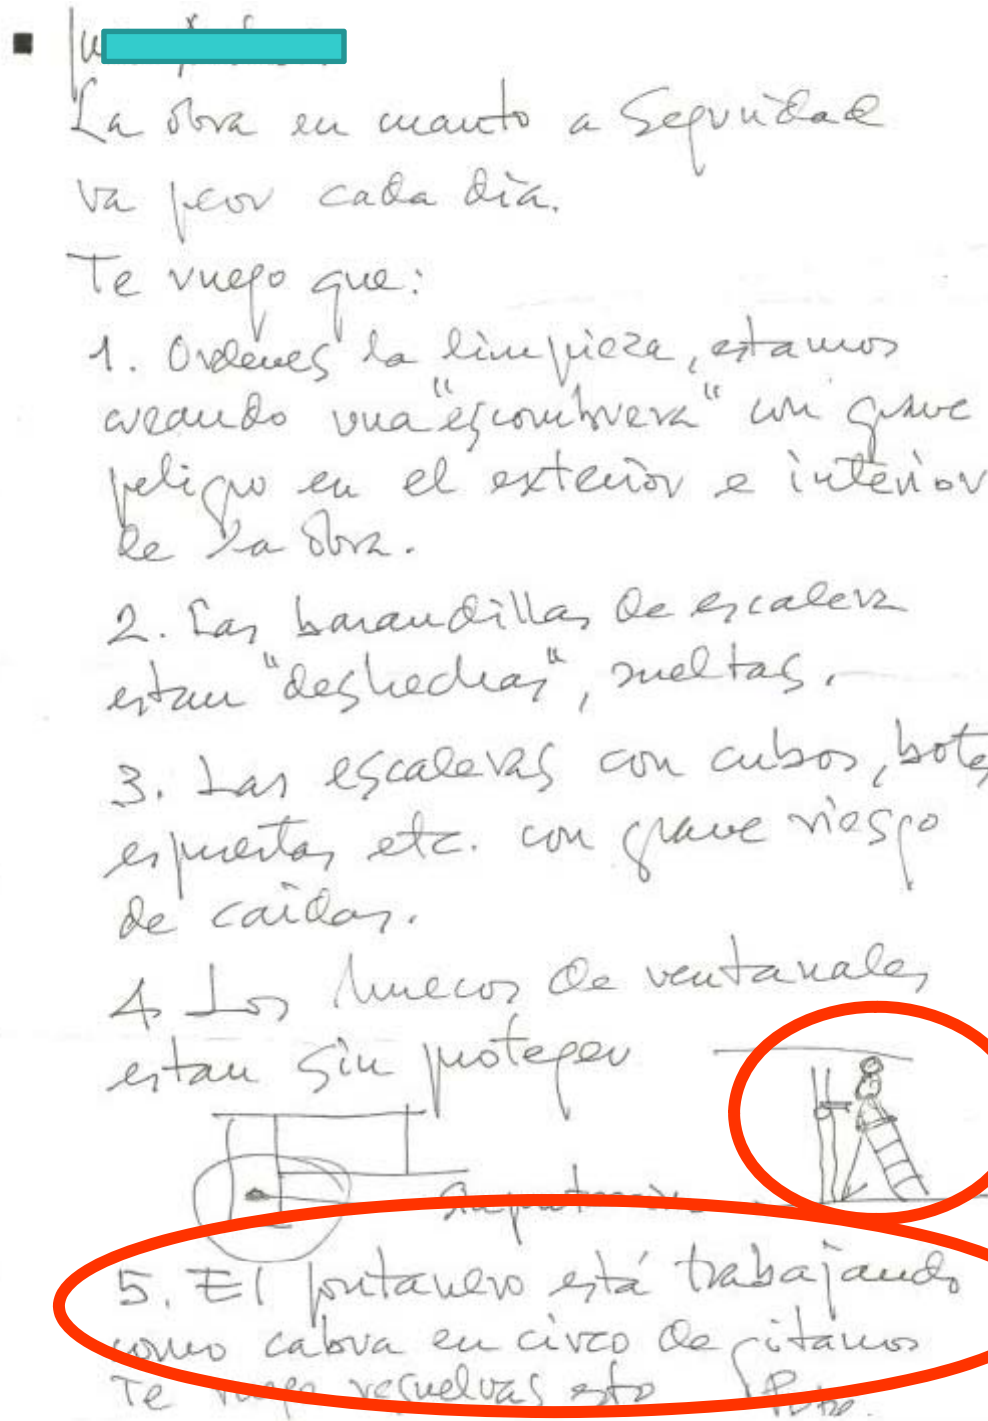 La obra en cuanto a Seguridad
va peor cada dia.
Te ruego que:
1. Ordenes la limpieza, estamos
creando una "escombrera" con grave
peligro en el exterior e interior
de la obra.
2. Las barandillas de escalera
estan "deshechas", sueltas.
3. Las escaleras con cubos, botes
espuertas etc. con grave riesgo
de caidas.
4 Los huecos de ventanales
estan sin proteger
5. El fontanero está trabajando
como cabra en circo de gitanos
Te ruego resuelvas esto